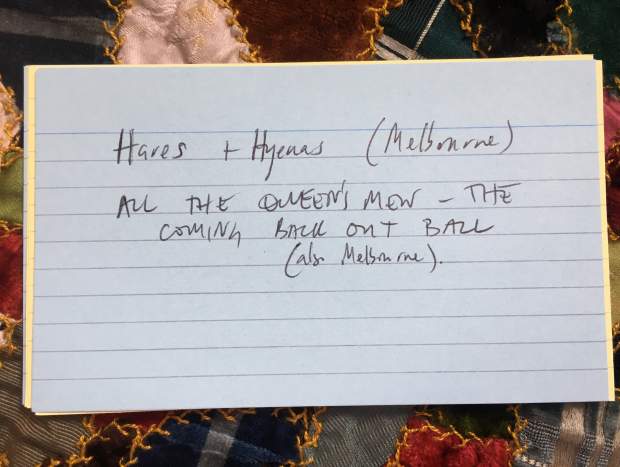 Hares + Hyenas (Melbourne)
ALL THE QUEEN'S MEN - THE
COMING BACK OUT BALL
(also Melbourne).